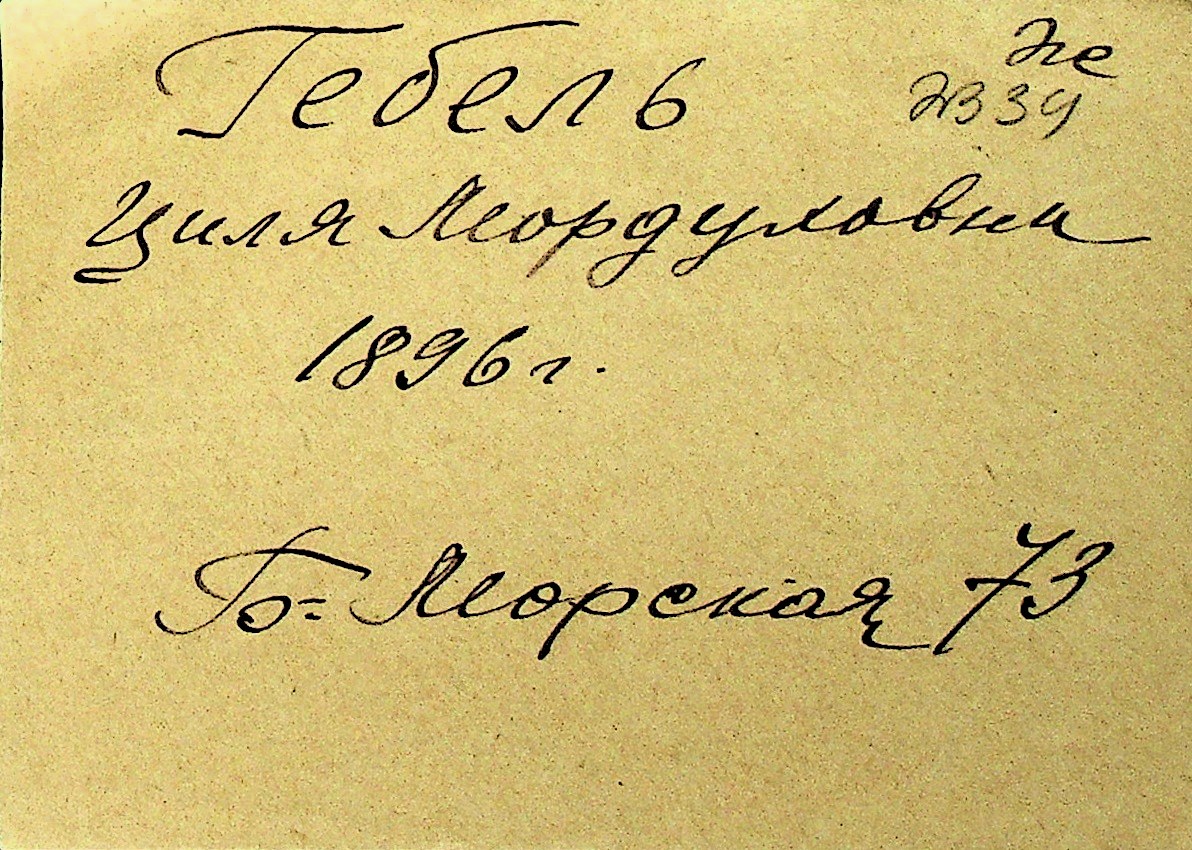 Гебель
Циля Мордуховна
1896 г.
Б= Морская 73